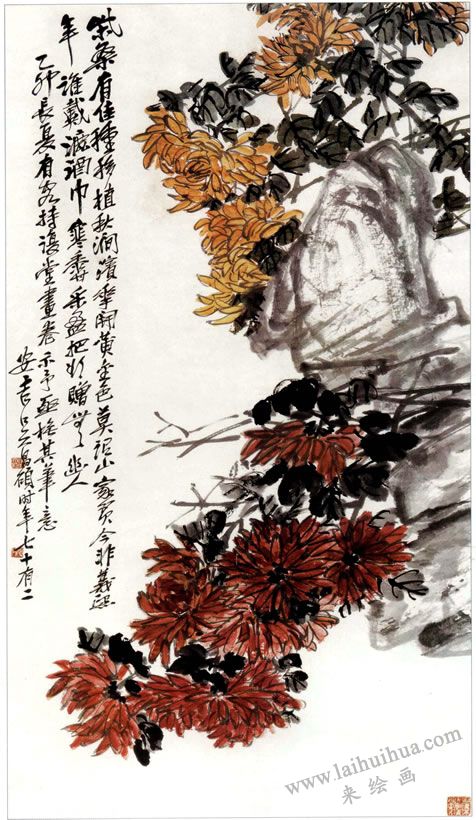 柴桑有佳種移植秋澗濱華開黃金色莫小家貧今非義熙
年誰戴漉酒巾寒香采盈把贈幽人
乙卯長夏有客持復堂畫卷示予亟橅其筆意
安吉吳昌碩時年七十有二
www.laihuihua.com
来绘画